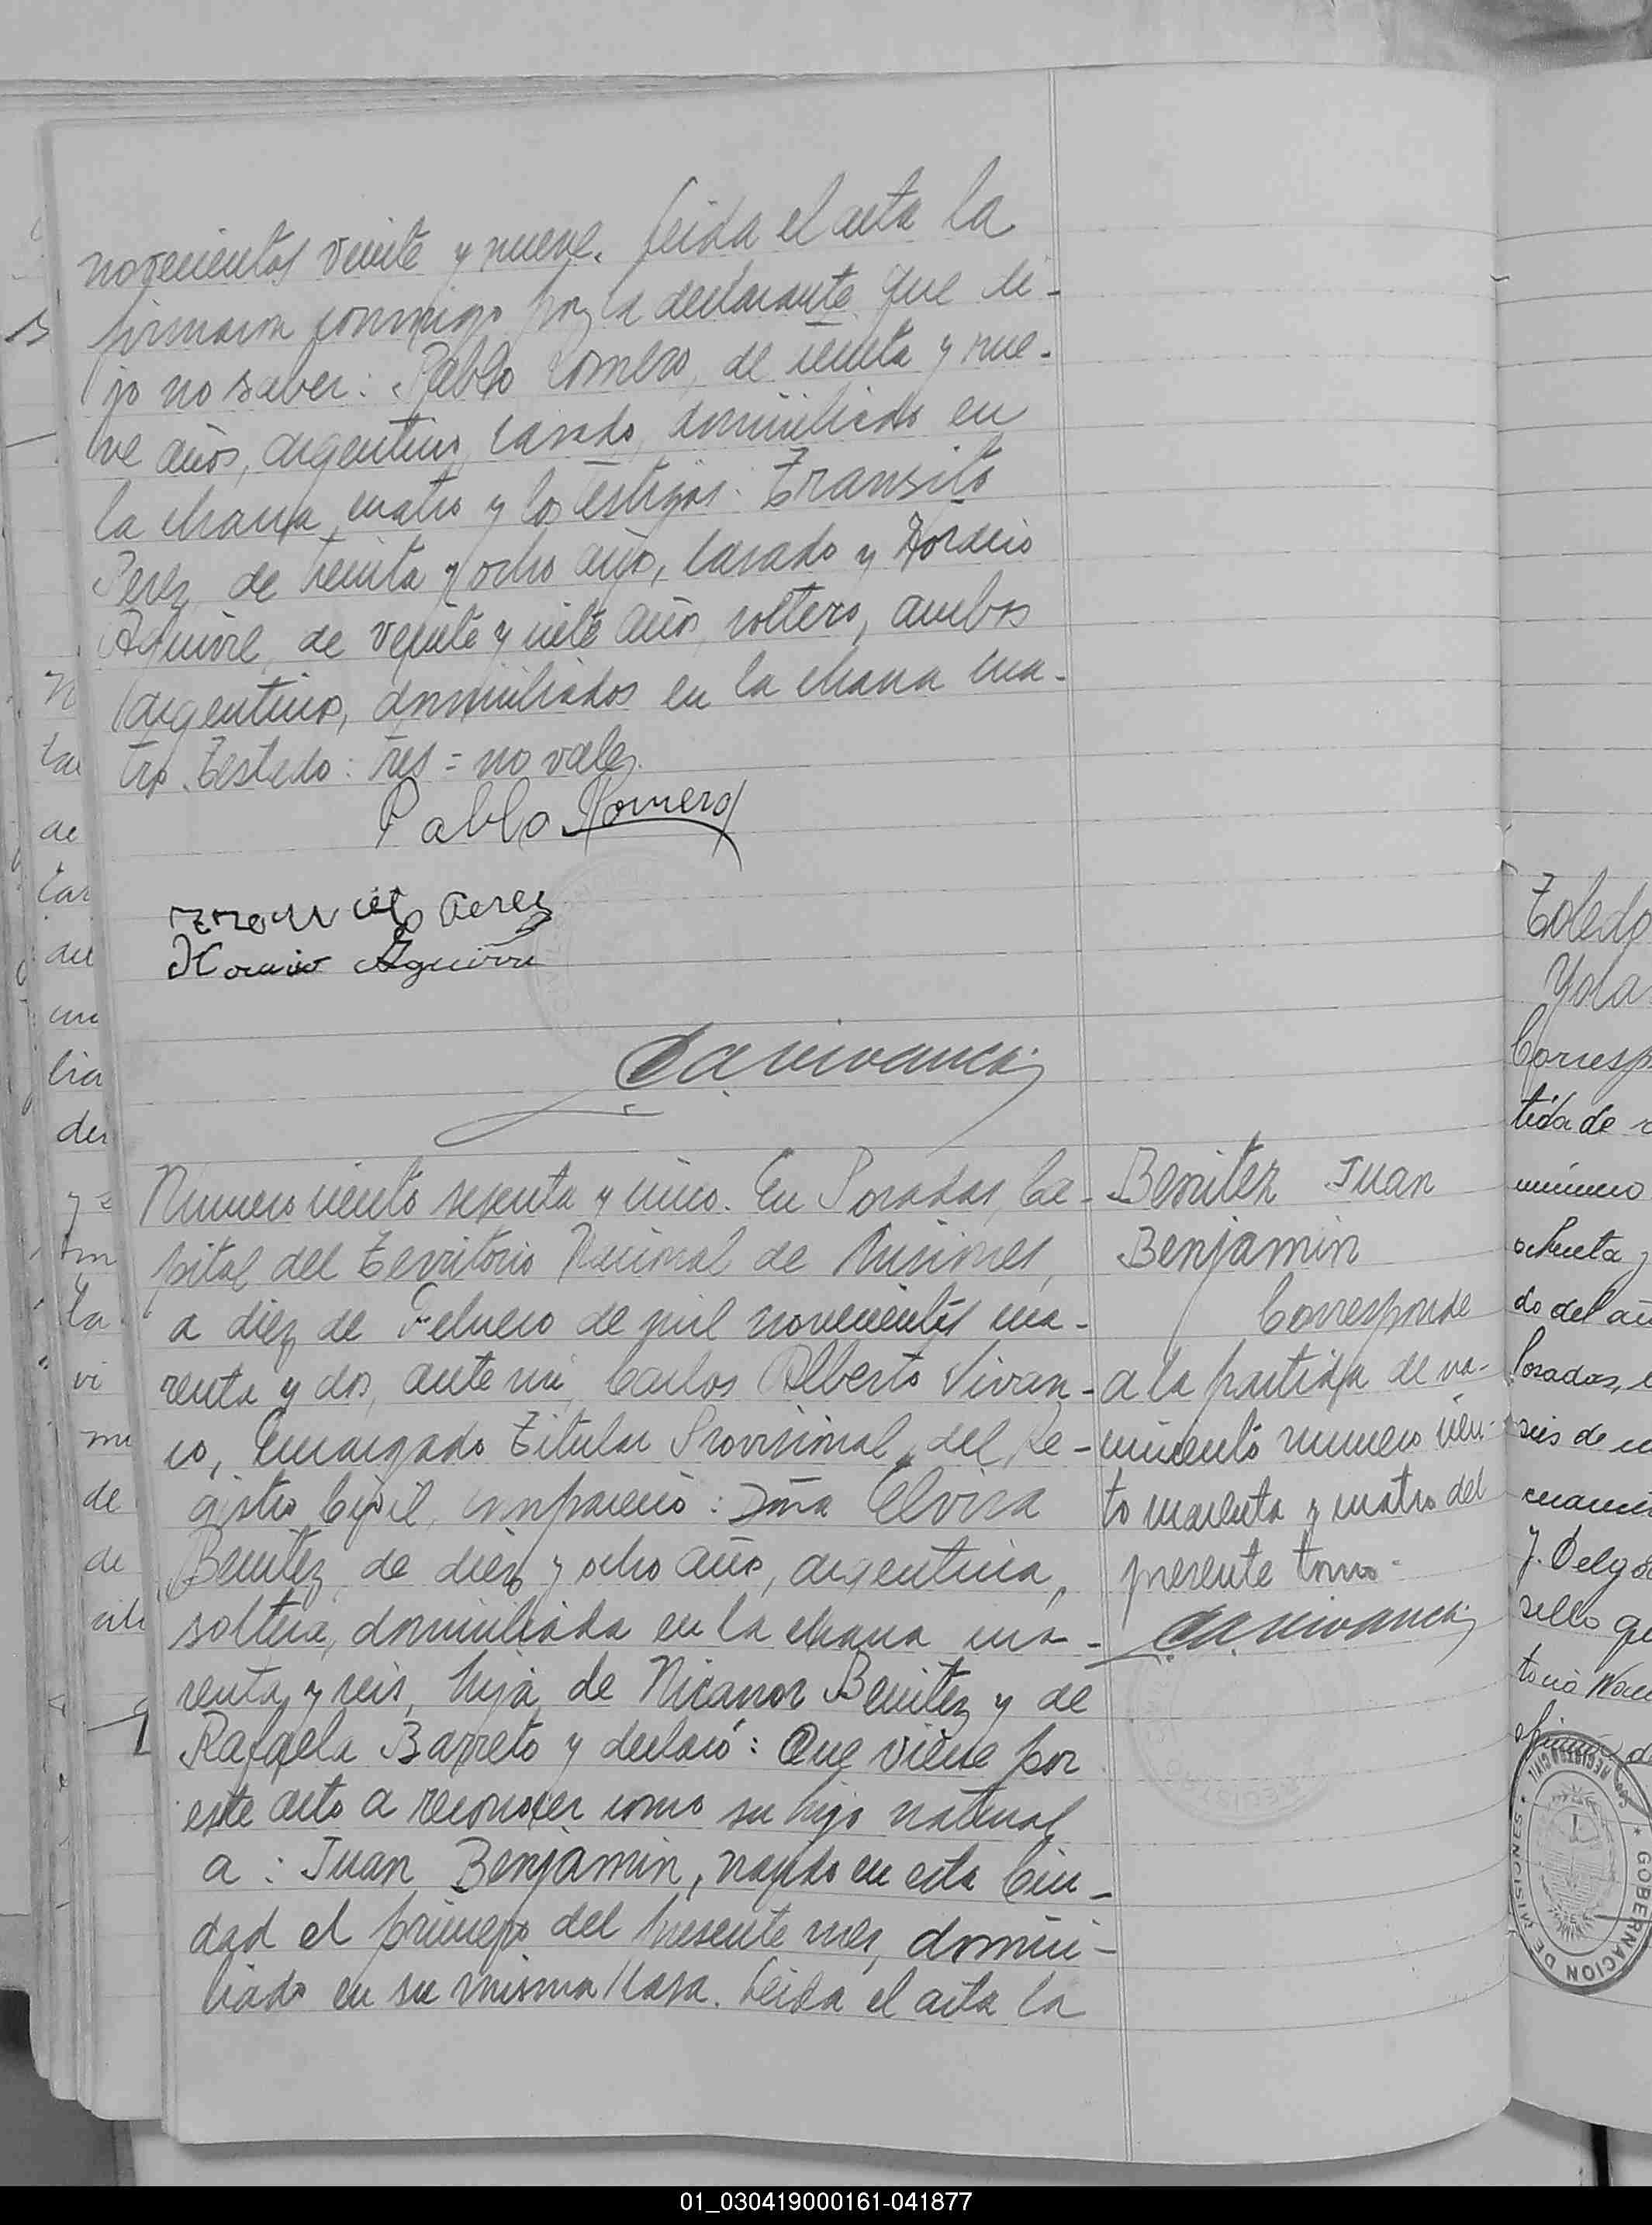 novecientos veinte y nueve. Leida el acta la
firmaron conmigo por la declarante que di-
jo no saber: Pablo Romero, de treinta y nue-
ve años, argentino, casado, domiciliado en
la chacra cuatro y los testigos: Transito
Perez, de treinta y ocho años, casado y Horacio
Aguirre, de veinte y siete años, soltero, ambos
argentinos, domiciliados en la chacra cua-
tro. Testado: tres = no vale.
Pablo Romero
Perez
Horacio Aguirre
CAVivanco
Numero ciento sesenta y cinco. En Posadas, Ca-
pital del Territorio Nacional de Misiones,
a diez de Febrero de mil novecientos cua-
renta y dos, ante mi, Carlos Alberto Vivan-
co, Encargado Titular Provisional del Re-
gistro Civil, comparecio: Doña Elvira
Benitez, de diez y ocho años, argentina,
soltera, domiciliada en la chacra cua-
renta y seis, hija de Nicanor Benitez y de
Rafaela Barreto y declaró: Que viene por
este acto a reconocer como su hijo natural
a: Juan Benjamin, nacido en esta Ciu-
dad el primero del presente mes, domici-
liado en su misma casa. Leida el acta la
Benitez Juan
Benjamin
Corresponde
a la partida de na-
cimiento numero cien-
to cuarenta y cuatro del
presente tomo.
CAVivanco
Toledo
Yola
Corresp
tida de
número
ochenta y
do del añ
Posadas, e
seis de
J. Delga
sello qu
REGISTRO CIVIL
GOBERNACION DE MISIONES